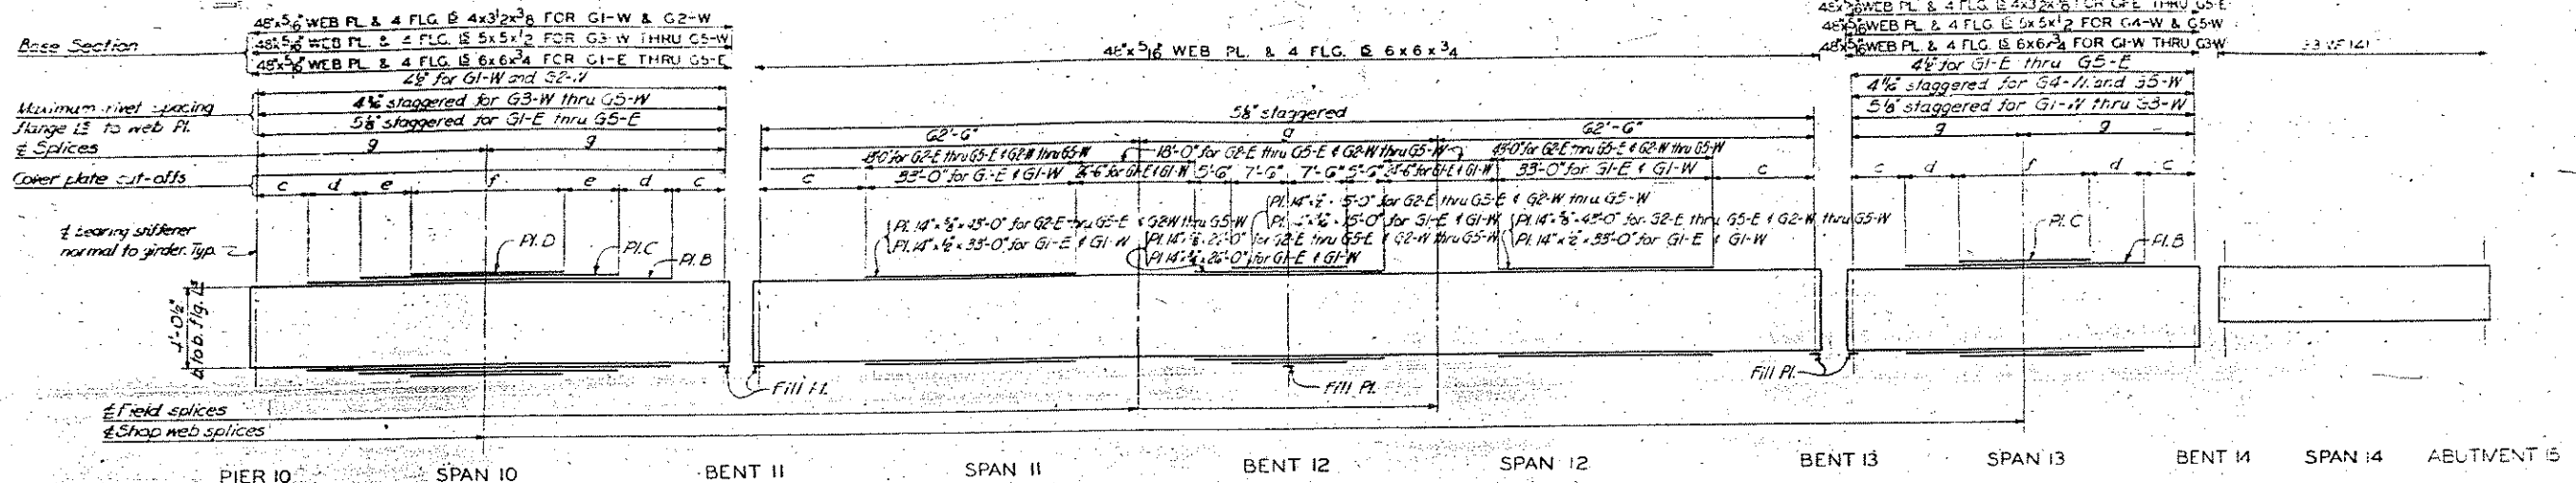 48"x5/16" WEB PL. & 4 FLG. LS 4x3½x3/8 FOR G1-W & G2-W
48"x5/16" WEB PL. & 4 FLG. LS 5x5x½ FOR G3-W THRU G5-W
48"x5/16" WEB PL. & 4 FLG. LS 6x6x¾ FOR G1-E THRU G5-E
Base Section
48"x5/16" WEB PL. & 4 FLG. LS 6x6x¾
48"x5/16" WEB PL. & 4 FLG. LS FOR THRU G5-E
48"x5/16" WEB PL. & 4 FLG. LS 5x5x½ FOR G4-W & G5-W
48"x5/16" WEB PL. & 4 FLG. LS 6x6x¾ FOR G1-W THRU G3-W
33 WF 141
Maximum rivet spacing
flange LS to web Pl.
4½" for G1-W and G2-W
staggered for G3-W thru G5-W
5⅛" staggered for G1-E thru G5-E
5⅛" staggered
4½" for G1-E thru G5-E
staggered for G4-W and G5-W
5⅛" staggered for G1-W thru G3-W
℄ Splices
g g 62'-6" g 62'-6" g g
45'-0" for G2-E thru G5-E & G2-W thru G5-W
18'-0" for G2-E thru G5-E & G2-W thru G5-W
45'-0" for G2-E thru G5-E & G2-W thru G5-W
Cover plate cut-offs
c d e f e d c
c 33'-0" for G1-E & G1-W for G1-E & G1-W 5'-6" 7'-6" 7'-6" 5'-6" for G1-E & G1-W 33'-0" for G1-E & G1-W c
c d f d c
℄ bearing stiffener
normal to girder. Typ.
Pl. D
Pl. C
Pl. B
Pl. 14"x⅝"x45'-0" for G2-E thru G5-E & G2-W thru G5-W
Pl. 14"x½"x33'-0" for G1-E & G1-W
Pl. 14" 15'-0" for G2-E thru G5-E & G2-W thru G5-W
Pl. 15'-0" for G1-E & G1-W
Pl. 14" for G2-E thru G5-E & G2-W thru G5-W
Pl. 14" 26'-0" for G1-E & G1-W
Pl. 14"x⅝"x45'-0" for G2-E thru G5-E & G2-W thru G5-W
Pl. 14"x½"x33'-0" for G1-E & G1-W
Pl. C
Pl. B
4'-0½"
b. to b. flg. LS
Fill Pl.
Fill Pl.
Fill Pl.
℄ Field splices
℄ Shop web splices
PIER 10 SPAN 10 BENT 11 SPAN 11 BENT 12 SPAN 12 BENT 13 SPAN 13 BENT 14 SPAN 14 ABUTMENT 15